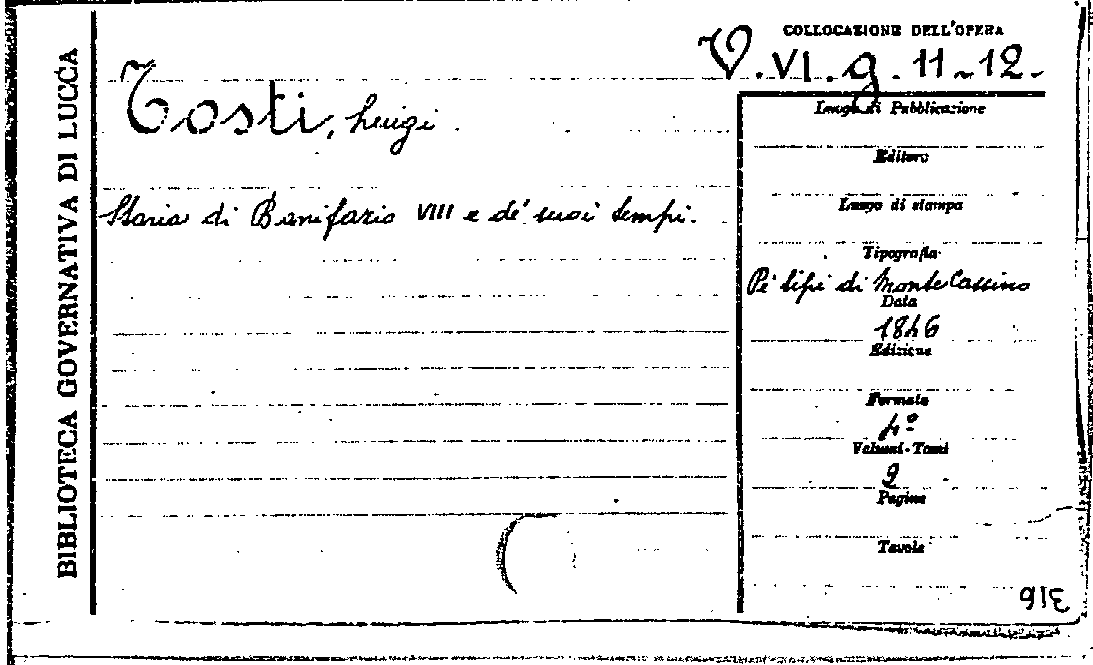 BIBLIOTECA GOVERNATIVA DI LUCCA
COLLOCAZIONE DELL'OPERA
V. VI. g. 11-12-
Tosti, Luigi.
Storia di Bonifazio VIII e de' suoi tempi.
Luogo di Pubblicazione
Editore
Luogo di stampa
Tipografia
Pe' tipi di Monte Cassino
Data
1846
Edizione
Formato
4º
Volumi-Tomi
2
Pagine
Tavole
316